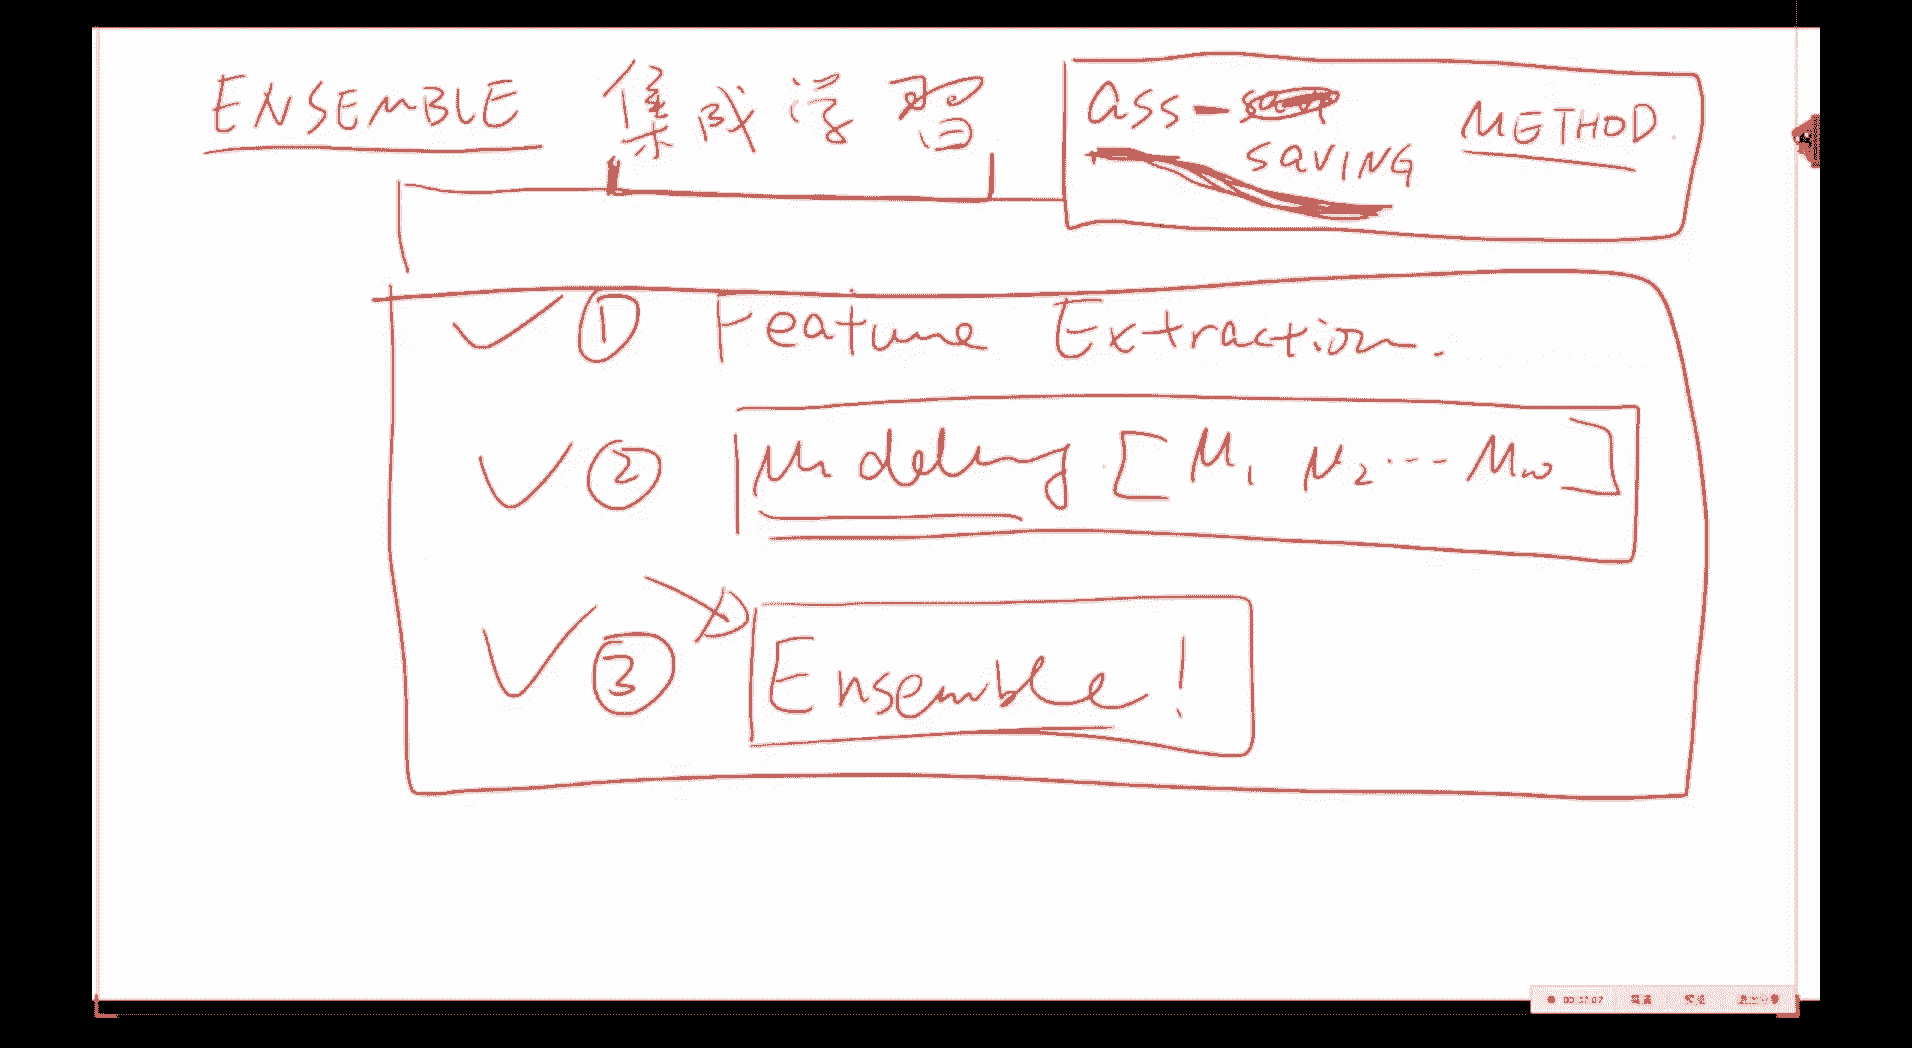 ENSEMBLE 集成学習
ass-
SAVING METHOD
① Feature Extraction.
② Modeling [M1 M2 ... M10]
③ Ensemble!